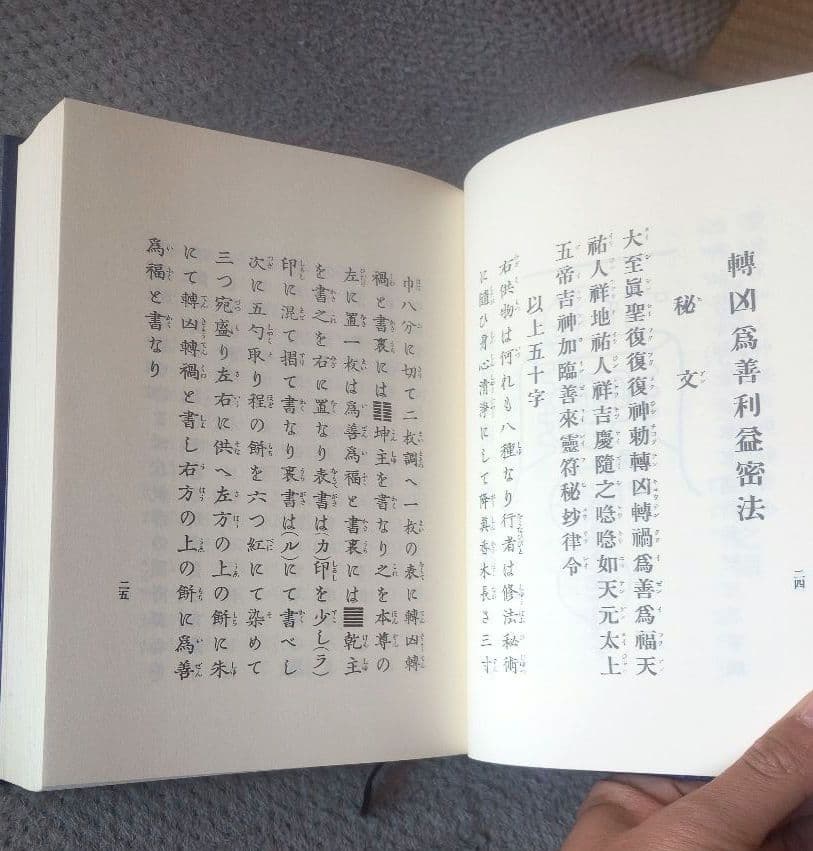 轉凶爲善利益密法
秘文
大至眞聖復復復神勅轉凶轉禍爲善爲福天
祐人祥地祐人祥吉慶隨之喼喼如天元太上
五帝吉神加臨善來靈符秘妙律令
以上五十字
右供物は何れも八種なり行者は修法秘術
に隨ひ身心清淨にして降眞香木長さ三寸
二四
巾八分に切て二枚調へ一枚の表に轉凶轉
禍と書裏には䷁坤主を書なり之を本尊の
左に置一枚は爲善爲福と書裏には䷀乾主
を書之を右に置なり表書は(カ)印を少し(ラ)
印に混て摺て書なり裏書は(ル)にて書べし
次に五勺取り程の餅を六つ紅にて染めて
三つ宛盛り左右に供へ左方の上の餅に朱
にて轉凶轉禍と書し右方の上の餅に爲善
爲福と書なり
二五